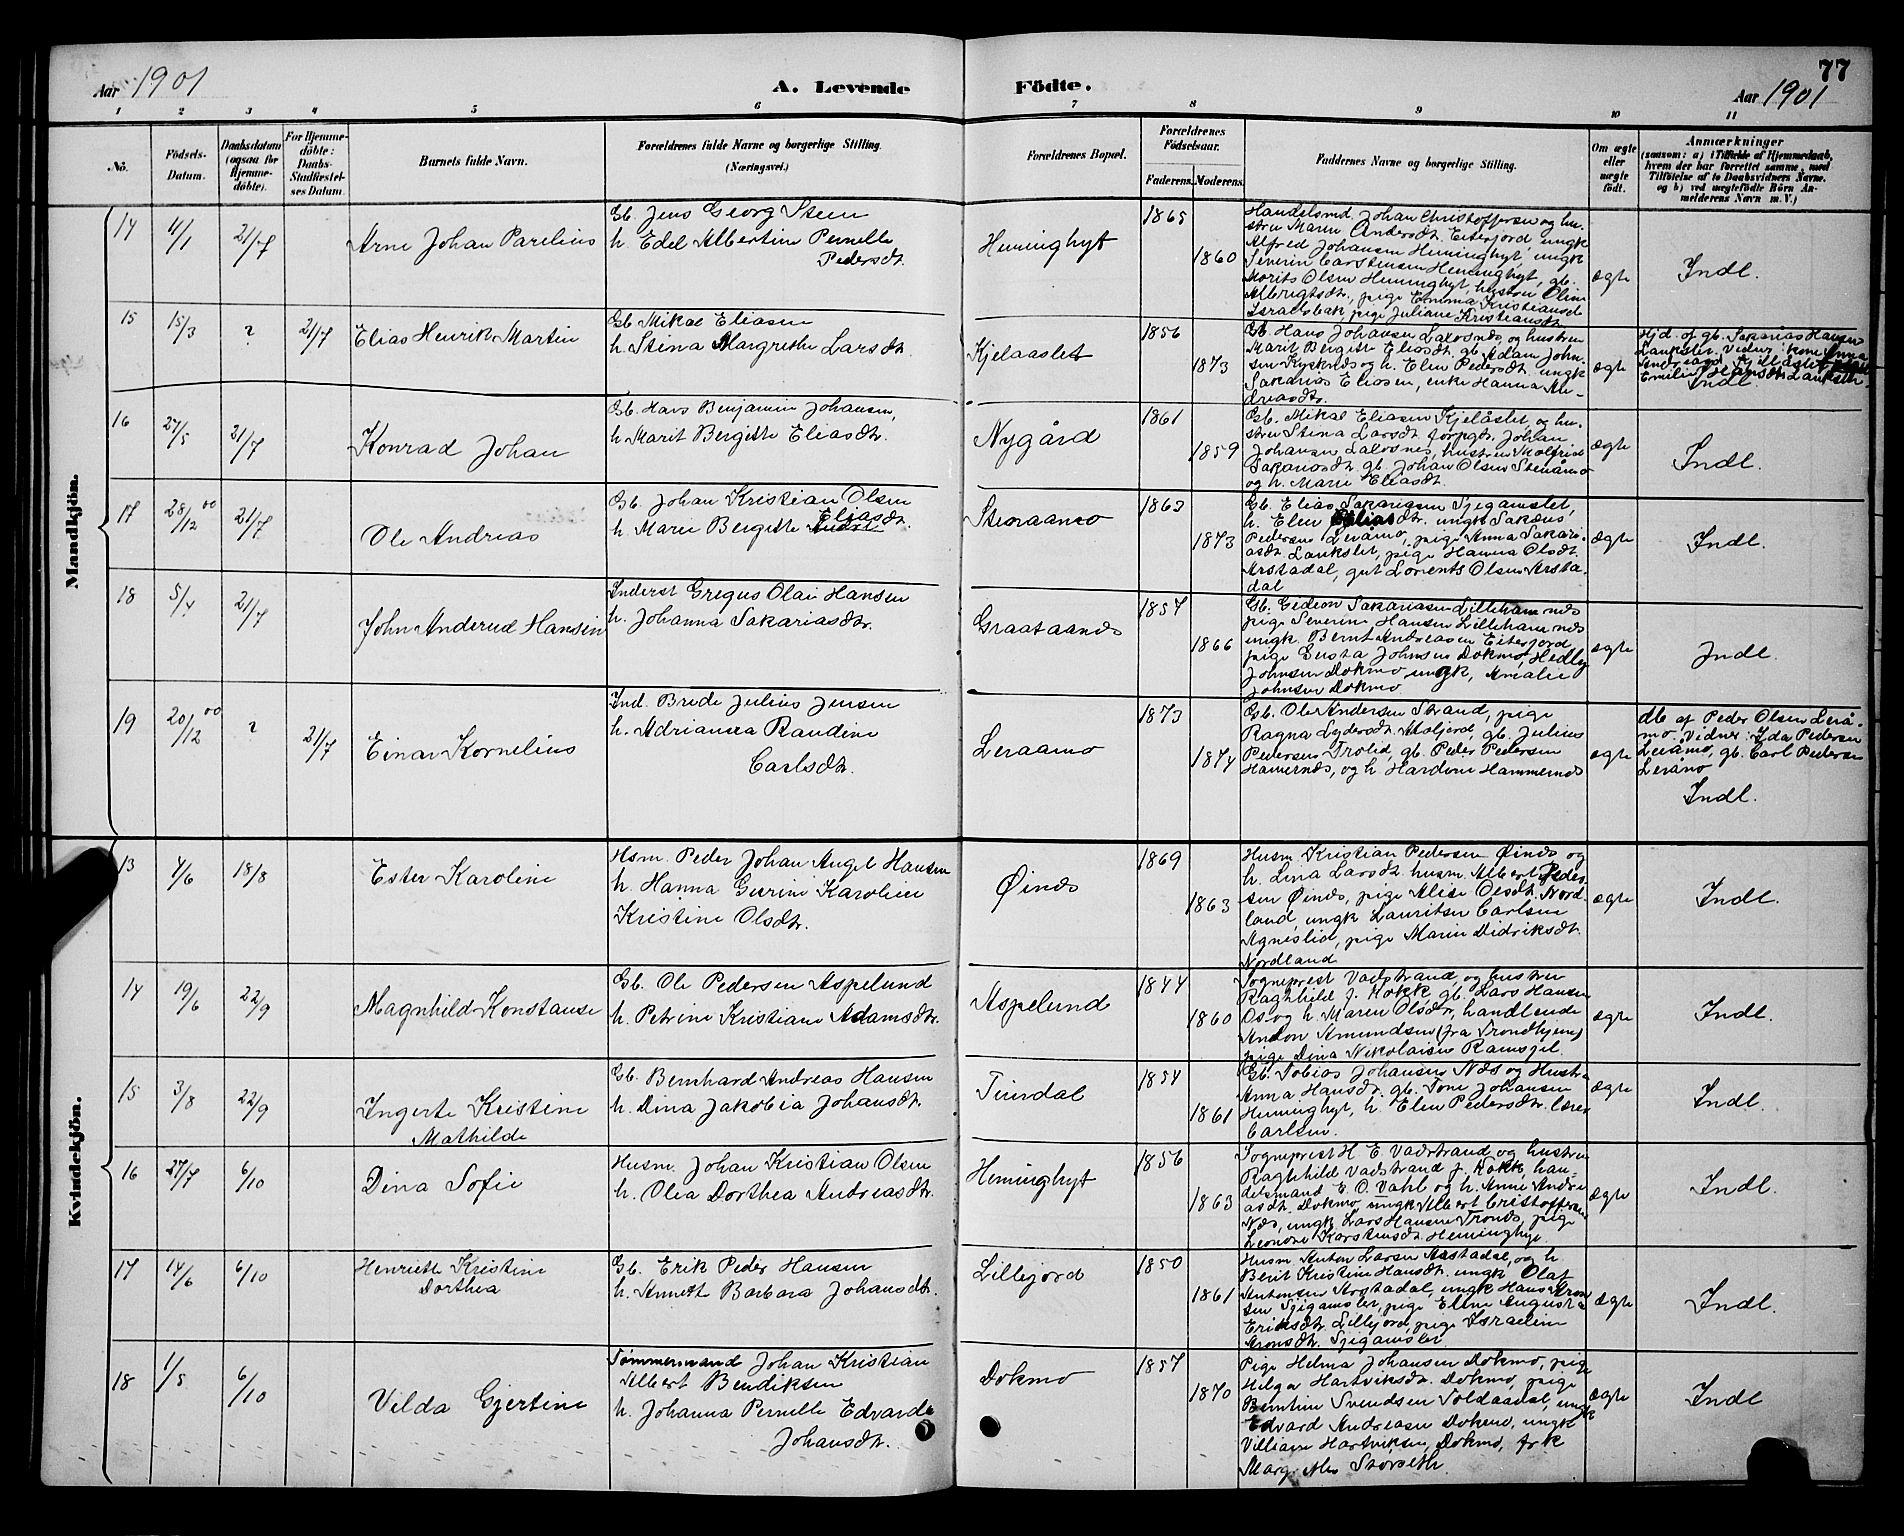 77
Aar 1901
A. Levende
Födte.
Aar 1901
1 2 3 4 5 6 7 8 9 10 11
No.
Födsels-Datum.
Daabsdatum (ogsaa for Hjemme-döbte).
For Hjemme-döbte: Daabs-Stadfæstel-ses Datum.
Barnets fulde Navn.
Forældrenes fulde Navne og borgerlige Stilling. (Næringsvei.)
Forældrenes Bopæl.
Forældrenes Födselsaar.
Faderens. Moderens.
Faddernes Navne og borgerlige Stilling.
Om ægte eller uægte födt.
Anmærkninger
(saasom: a) i Tilfælde af Hjemmedaab,
hvem der har forrettet samme, med
Tilföielse af to Daabsvidners Navne.
og b) ved uægtefödte Börn An-
melderens Navn m. V.)
Mandkjön.
14 11/1 21/7
Arne Johan Parelius
Gb. Jens Georg Steen
h. Edel Albertine Pernelle
Pedersdt.
Heminghyt
1865
1860
Handelsmd. Johan Christoffersen og hu-
stru Maren Andersdt. Eiterfjord, ungk
Alfred Johansen Heminghyt, ungk
Severin Carstensen Heminghyt, gb.
Morits Olsen Heminghyt, hustru Oline
Albrigtsdt., pige Emma Kristiansd
Israelsbak, pige Juliane Kristiansdt.
ægte
Indl.
15 15/3 ? 21/7
Elias Henrik Martin
Gb. Mikal Eliasen
h. Stina Margrethe Larsdt.
Kjelaaslet
1856
1873
Gb. Hans Johansen Laxosnes og hustru
Marit Bergitte Eliasdt. gb. Adam John-
sen og h. Elen Pedersdt. ungk
Sakarias Eliasen, enke Hanna An-
dreasdt.
ægte
Hjd. af gb. Sakarias Hansen
Lankslet. Vidner: kone Anna
Indl.
16 27/5 21/7
Konrad Johan
Gb. Hans Benjamin Johansen,
h. Marit Bergitte Eliasdt.
Nygård
1861
1859
Gb. Mikal Eliasen Kjelåslet, og hu-
stru Stina Larsdt. forpgt. Johan
Johansen Laxosnes, hustru
Sakariasdt. gb. Johan Olsen Stenåmo
og h. Marie Eliasdt.
ægte
Indl.
17 28/12 00 21/7
Ole Andreas
Gb. Johan Kristian Olsen
Eliasdt.
h. Marie Bergitte
Stenaamo
1863
1873
Gb. Elias Sakariasen Sjegamslet,
h. Elen Eliasdt. ungk Sakæus
Pedersen Leråmo, pige Anna Sakari-
asdt. Lankslet, pige Hanna Olsdt.
Arstadal, gut Lorents Olsen Arsta-
dal
ægte
Indl.
18 5/4 21/7
John Anderud Hansen
Inderst Gregus Olai Hansen
h. Johanna Sakariasdt.
Graataanes
1857
1866
Gb. Gideon Sakariasen Lillehamnes
pige Severine Hansen Lillehamnes
ungk. Bernt Andreasen Eiterfjord
pige Gusta Johnsen Dokmo, Hedley
Johnsen Dokmo ungk, Amalie
Johnsen Dokmo
ægte
Indl.
19 20/12 00 ? 21/7
Einar Kornelius
Ind. Brede Julius Jensen
h. Adrianna Randine
Carlsdt.
Leraamo
1873
1874
Gb. Ole Andersen Strand, pige
Ragna Lydersdt. gb. Julius
Pedersen Trolid, gb. Peder Pedersen
Hamernes, og h. Hardine Hammernes
ægte
db af Peder Olsen Lerå-
mo. Vidner: Ida Pedersen
Leråmo, gb. Carl Pedersen
Leråmo
Indl.
Kvindekjön.
13 4/6 18/8
Ester Karoline
Hsm. Peder Johan Angel Hansen
h. Hanna Gurine Karoline
Kristine Olsdt.
Øines
1869
1863
Husm. Kristian Pedersen Øines og
h. Lina Larsdt. husm. Albert Peder-
sen Øines, pige Alise Olsdt. Nord-
land, ungk Lauritsen Carlsen
Agneslid, pige Marie Didriksdt.
Nordland
ægte
Indl.
14 19/6 22/9
Magnhild Konstanse
Gb. Ole Pedersen Aspelund
h. Petrine Kristiane Adamsdt.
Aspelund
1844
1860
Sogneprest Vadstrand, og hustru
Raghild f. Kokk gb. Lars Hansen
Os og h. Maren Olsdt., handlende
Anton Amundsen (fra Trondhjem)
pige Dina Nikolaisen Ramsjel.
ægte
Indl.
15 3/8 22/9
Ingerte Kristine
Mathilde
Gb. Bernhard Andreas Hansen
h. Dina Jakobia Johansdt.
Tuvdal
1854
1861
Gb. Tobias Johansen Næs og Hustru
Anna Hansdt. gb. Tone Johansen
Heminghyt, h. Elen Pedersdt. lærer
Carlsen.
ægte
Indl.
16 27/7 6/10
Dina Sofie
Husm. Johan Kristian Olsen
h. Olea Dorthea Andreasdt.
Heminghyt
1856
1863
Sogneprest H. E. Vadstrand og hustru
Raghild Vadstrand f. Kokk, han-
delsmand E. O. Vahl og h. Anne Andre
asdt. Dokmo, ungk Albert Cristoffersen
Næs, ungk. Lars Hansen Trones, pige
Leonore Karstensdt. Heminghyt
ægte
Indl.
17 14/6 6/10
Henriette Kristine
Dorthea
Gb. Erik Peder Hansen
h. Annette Barbara Johansdt.
Lillefjord
1850
1861
Husm Anton Larsen Aastadal, og h.
Berit Kristine Hansdt. ungk Olaf
Antonsen Arstadal, ungk Hans Aron
sen Sjigamslet, pige Eline Augusta
Eriksdt. Lillefjord, pige Israeline
Aronsdt. Sjigamslet
ægte
Indl.
18 1/5 6/10
Vilda Gjertine
Tømmermand Johan Kristian
Albert Bendiksen
h. Johanna Pernelle Edvarda
Johansdt.
Dokmo
1857
1870
Pige Helma Johansen Dokmo, pige
Helga Hartviksdt. Dokmo, pige
Berntine Svendsen Soldaadal, ungk
Edvard Andreasen Dokmo, ungk
Villiam Hartviksen, Dokmo, frk
Marg.
ægte
Indl.